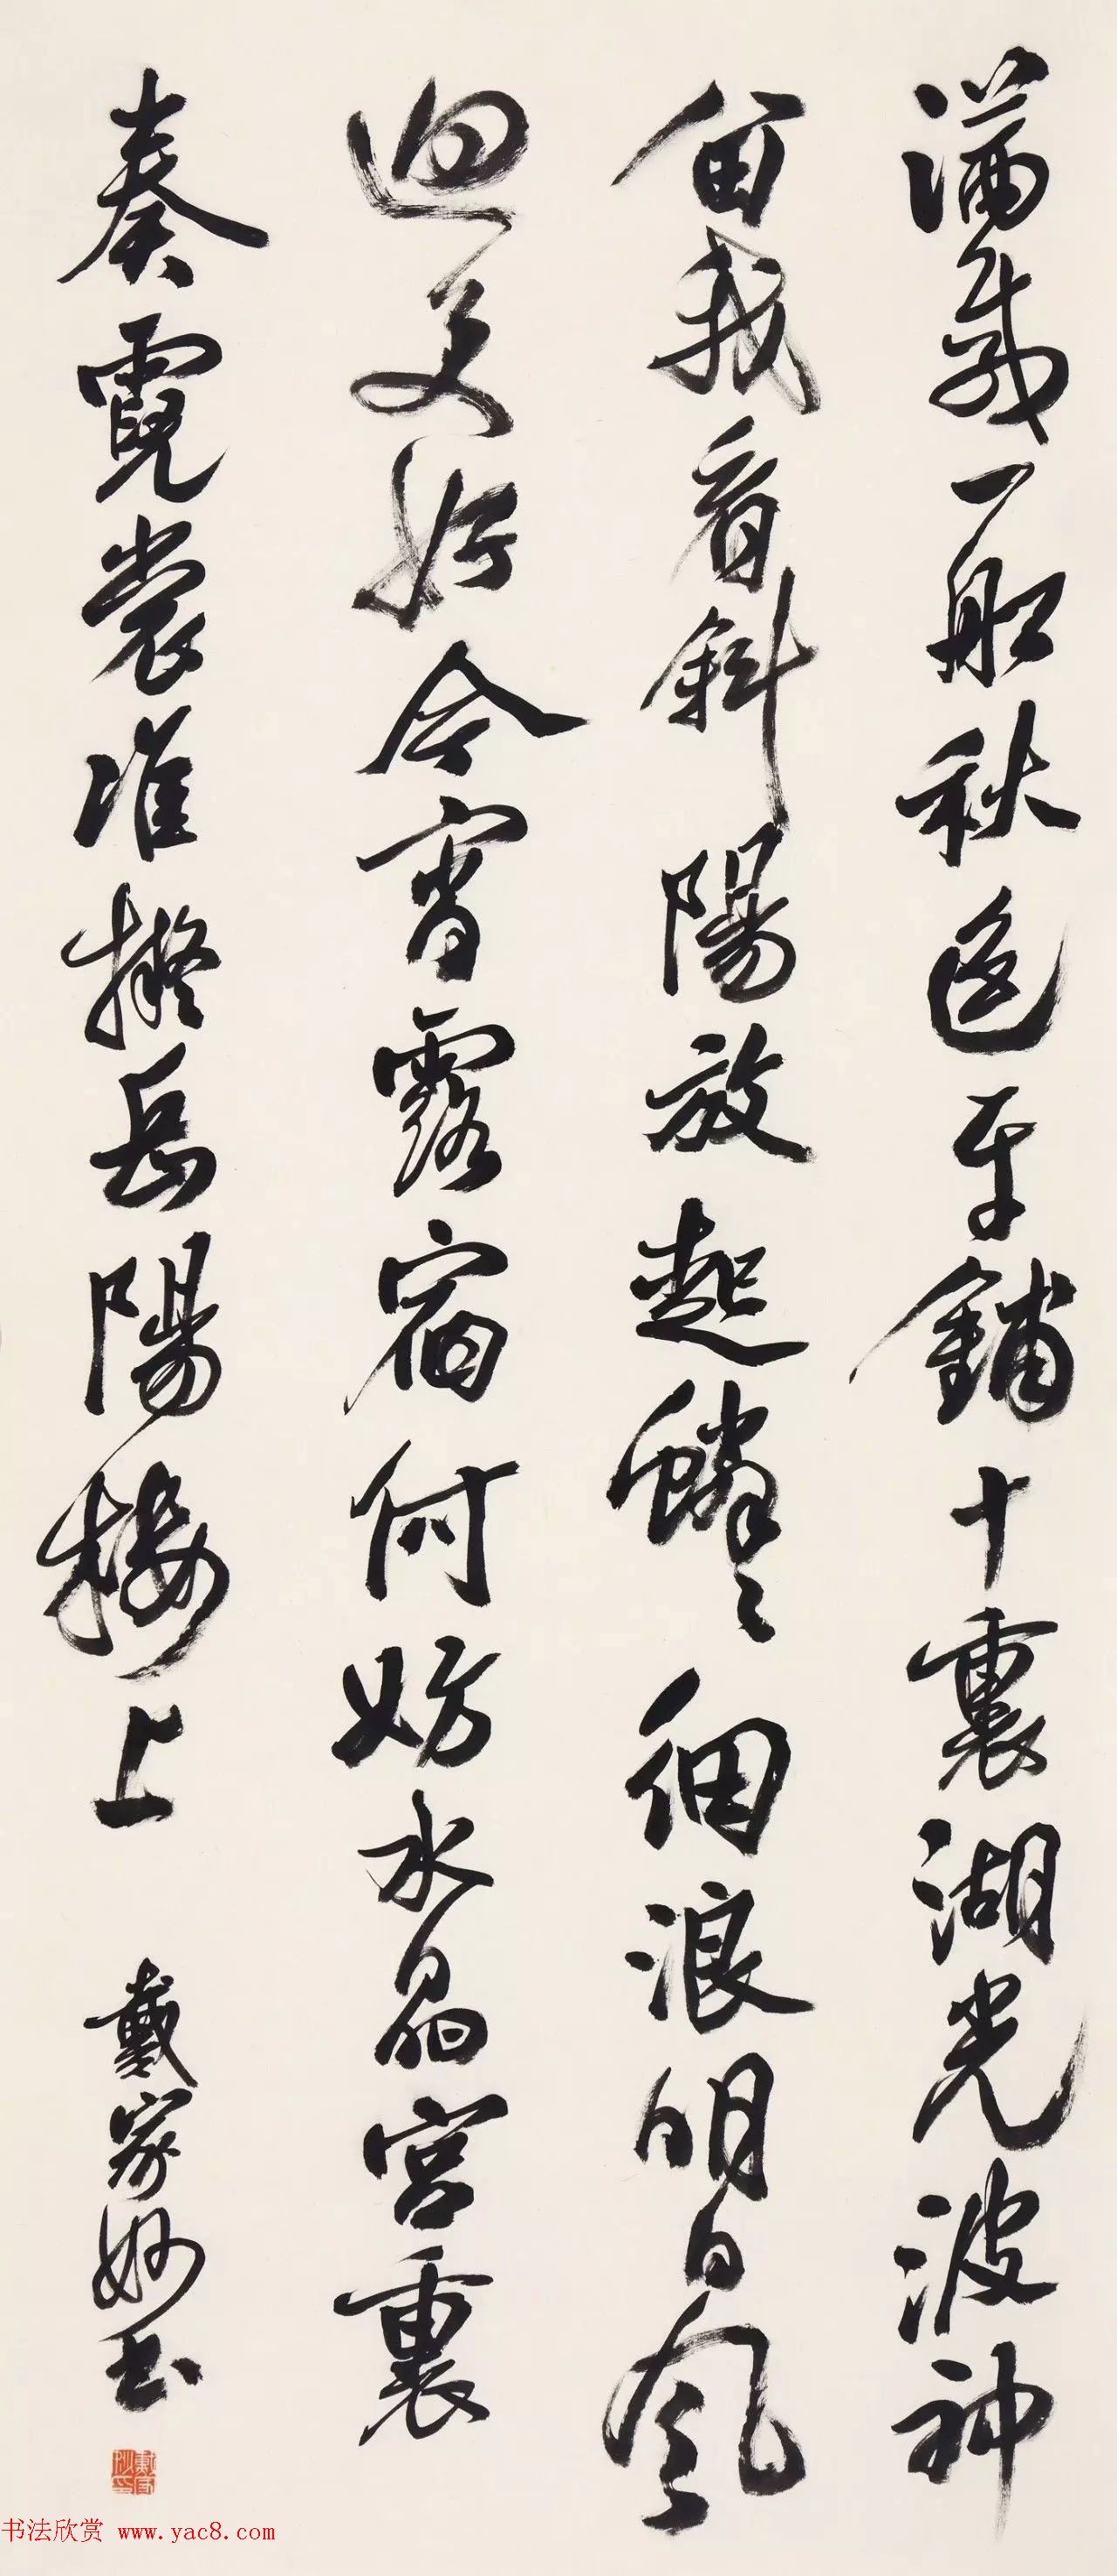 滿載一船秋色平鋪十裏湖光波神
留我看斜陽放起鱗々細浪明日風
迴更好今宵露宿何妨水晶宮裏
奏霓裳准擬岳陽樓上
戴家妙書
戴家妙印
书法欣赏 www.yac8.com